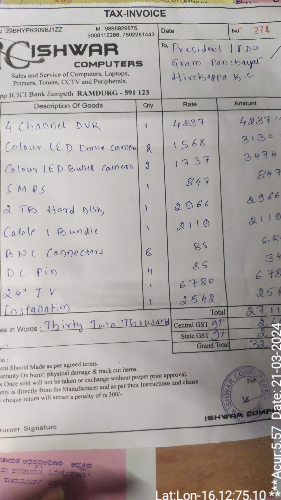 TAX-INVOICE
M. 9886929575
Date
No 271
ISHWAR
COMPUTERS
To, President / PDO
Gram Panchayat
Sales and Service of Computers, Laptops,
Printers, Toners, CCTV and Peripherals.
ICICI Bank Junipeth RAMDURG - 591 123
Description Of Goods Qty Rate Amount
4 Channel DVR 1 4237 4237
Colour LED Dome camera 2 1568 3130
Colour LED Bullet camera 2 1737 3474
SMPS 1 847 847
2 TB Hard Disk 1 2966 2966
Cable 1 Bundle 1 2119 2119
BNC Connectors 6 85
DC Pin 4 85 34
24" TV 1 6780 678
Installation 1 2542 254
Total 2711
es in Words : Thirty Two Thousand
Central GST 9%
State GST 9%
Grand Total 32
Should Made as per agreed terms
Warranty On burnt, physical damage & track cut items.
Once sold will not be taken or exchange without proper prior approval.
is directly from the Manufacturer and as per their Instructions and clause
cheque return will attract a penalty of rs 300/-
For
ISHWAR COMP
tomer Signature
Lat:Lon-16.12:75.10
***Acur:5.57 Date: 21-03-2024